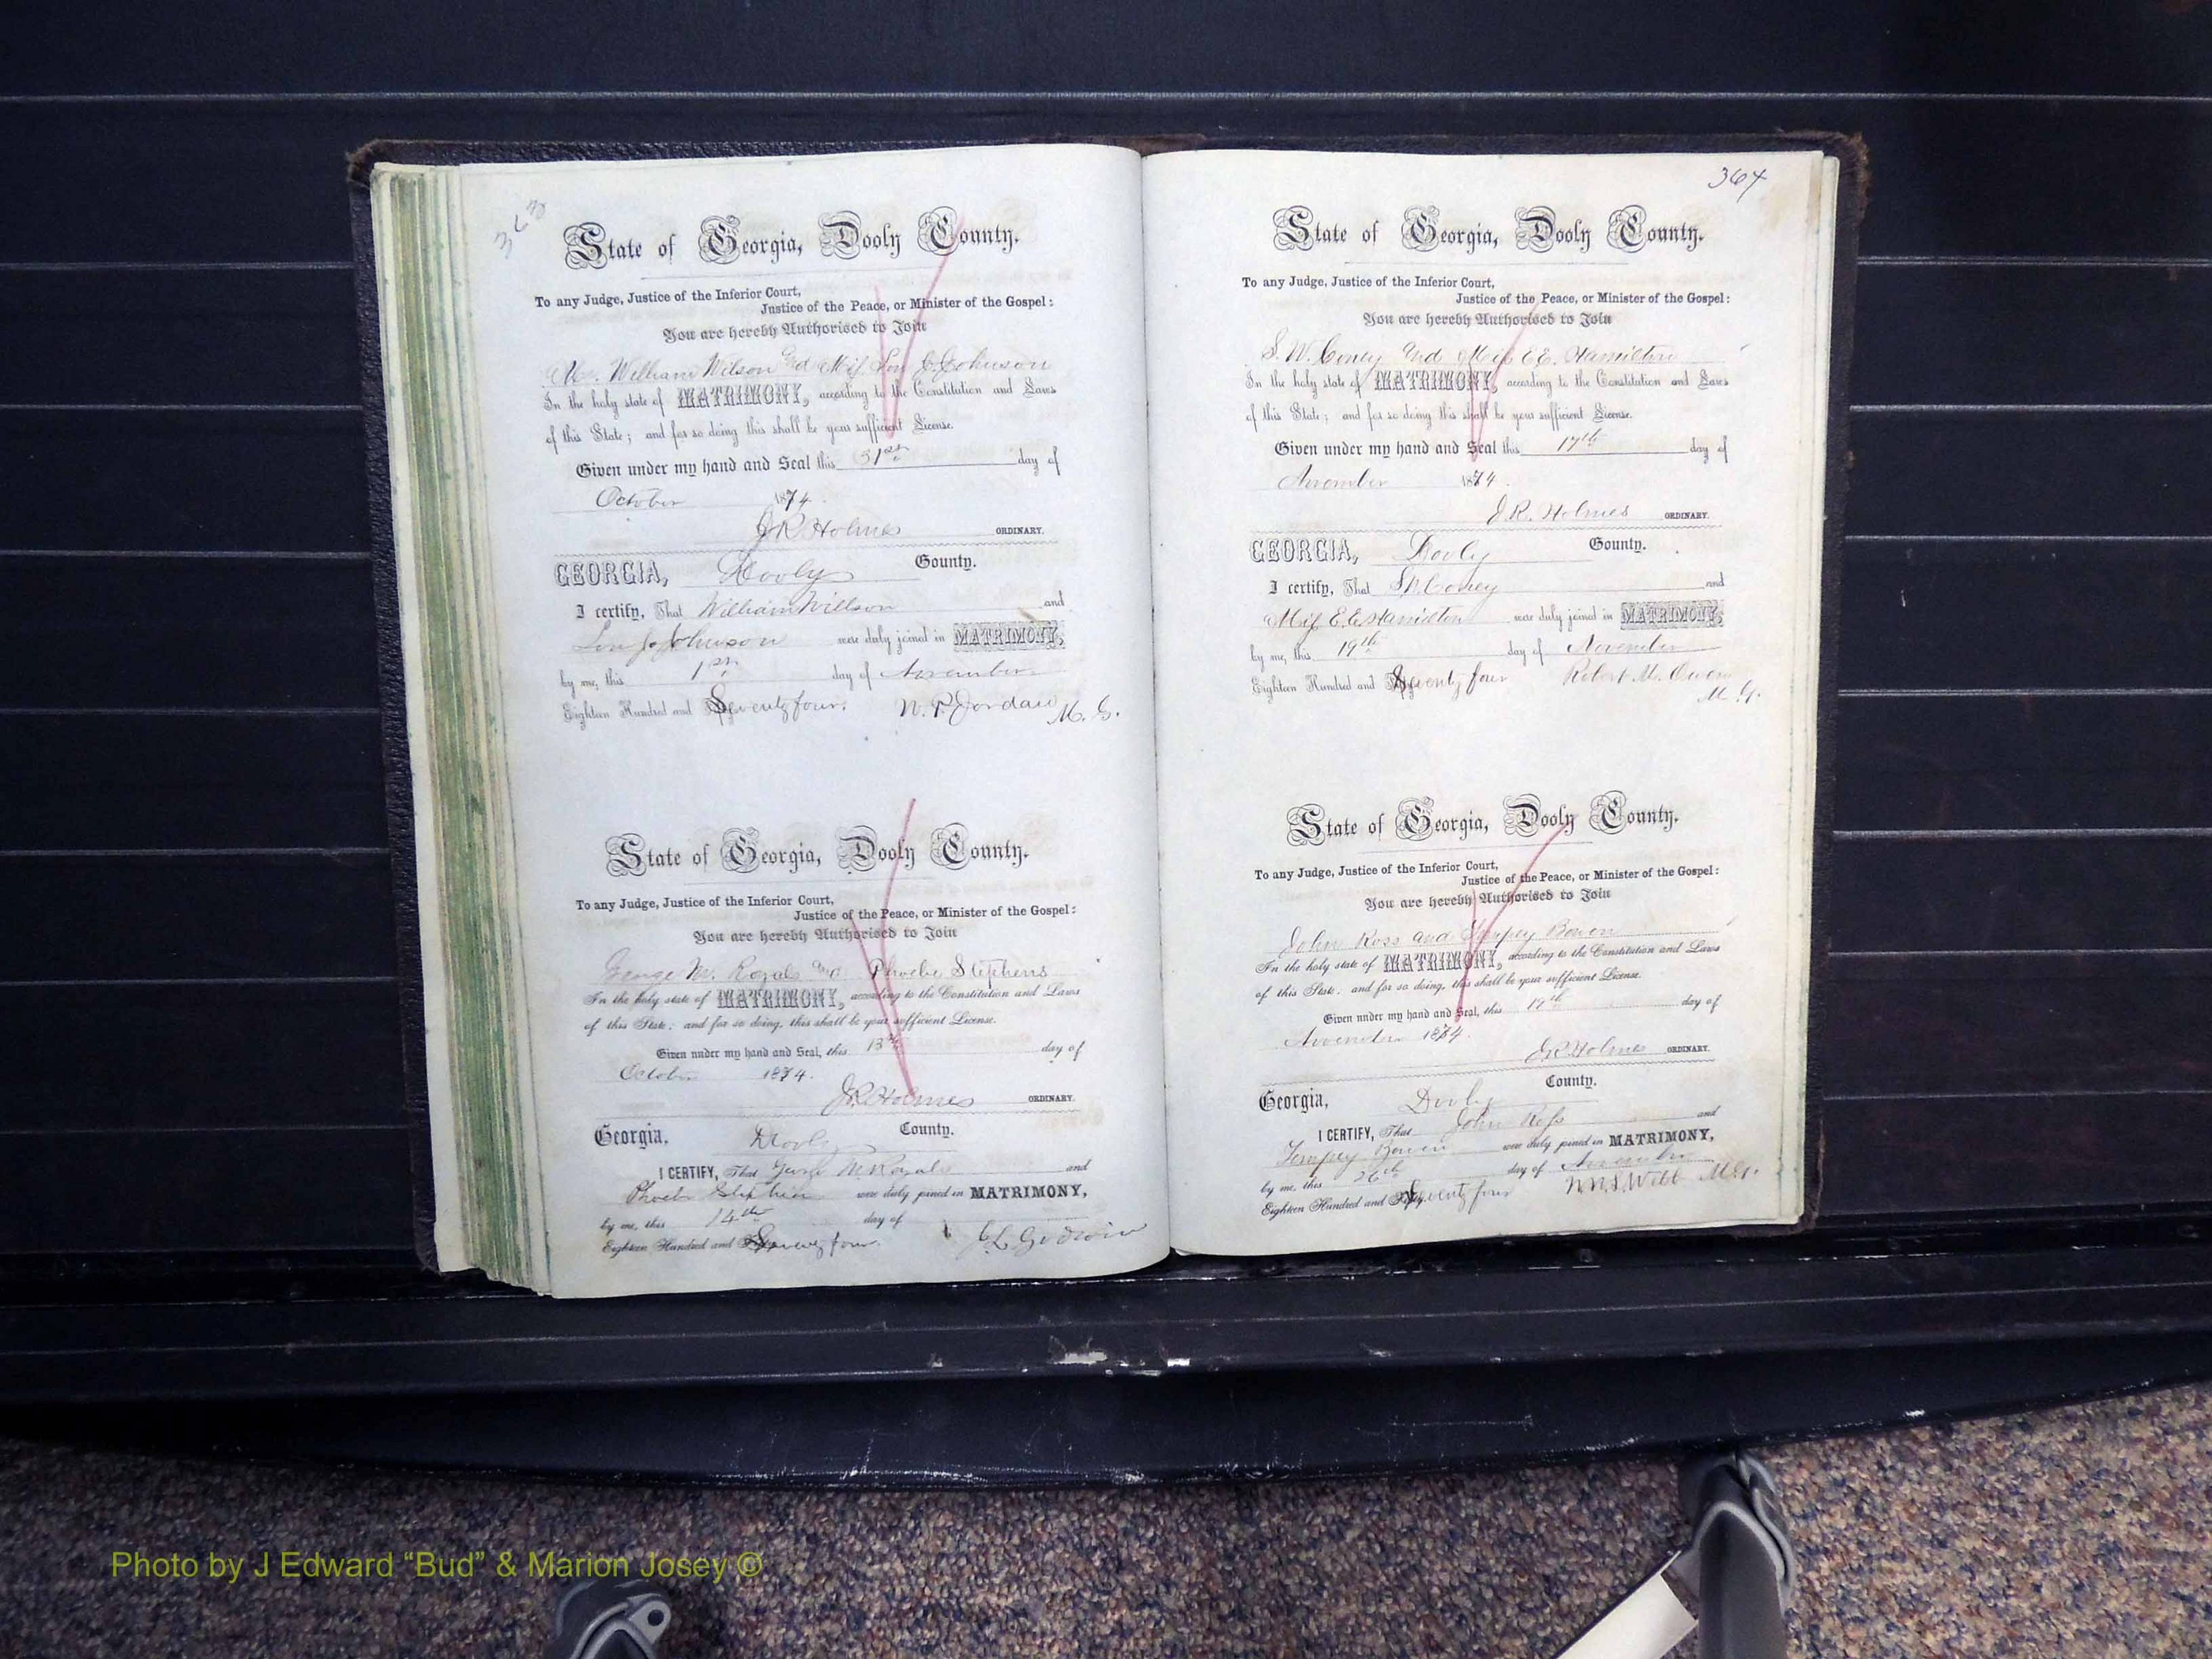 363
State of Georgia, Dooly County.
To any Judge, Justice of the Inferior Court,
Justice of the Peace, or Minister of the Gospel:
You are hereby Authorised to Join
Mr. William Wilson and Miss Lou J. Johnson
In the holy state of MATRIMONY, according to the Constitution and Laws
of this State; and for so doing this shall be your sufficient License.
Given under my hand and Seal this 31st day of
October 1874.
J R Holmes ORDINARY.
GEORGIA, Dooly County.
I certify, That William Willson and
Lou J. Johnson were duly joined in MATRIMONY,
by me, this 1st day of November
Eighteen Hundred and Seventy four. W. P. Jordan M. G.
State of Georgia, Dooly County.
To any Judge, Justice of the Inferior Court,
Justice of the Peace, or Minister of the Gospel:
You are hereby Authorised to Join
George M. Royals and Phoebe Stephens
In the holy state of MATRIMONY, according to the Constitution and Laws
of this State: and for so doing, this shall be your sufficient License.
Given under my hand and Seal, this 13th day of
October 1874.
J R Holmes ORDINARY.
Georgia, Dooly County.
I CERTIFY, That George M. Royals and
Phoebe Stephens were duly joined in MATRIMONY,
by me, this 14th day of
Eighteen Hundred and Seventy four. J. L. Godwin
364
State of Georgia, Dooly County.
To any Judge, Justice of the Inferior Court,
Justice of the Peace, or Minister of the Gospel:
You are hereby Authorised to Join
S. W. Coney and Miss E. E. Hamilton
In the holy state of MATRIMONY, according to the Constitution and Laws
of this State; and for so doing this shall be your sufficient License.
Given under my hand and Seal this 17th day of
November 1874.
J. R. Holmes ORDINARY.
GEORGIA, Dooly County.
I certify, That S W. Coney and
Miss E. E. Hamilton were duly joined in MATRIMONY,
by me, this 19th day of November
Eighteen Hundred and Seventy four Robert M. Owen
M. G.
State of Georgia, Dooly County.
To any Judge, Justice of the Inferior Court,
Justice of the Peace, or Minister of the Gospel:
You are hereby Authorised to Join
John Ross and Tempey Bowen
In the holy state of MATRIMONY, according to the Constitution and Laws
of this State: and for so doing, this shall be your sufficient License.
Given under my hand and Seal, this 17th day of
November 1874.
J R Holmes ORDINARY.
Georgia, Dooly County.
I CERTIFY, That John Ross and
Tempey Bowen were duly joined in MATRIMONY,
by me, this 26th day of November
Eighteen Hundred and Seventy four Webb M.G.
Photo by J Edward “Bud” & Marion Josey ©